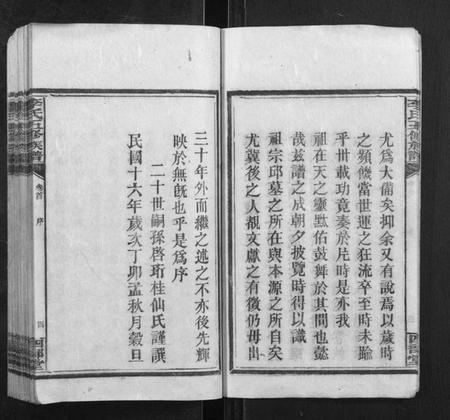 尤爲大備矣抑余又有說焉以歲時
之頻饑當世運之狂流卒至時未踰
乎卅載功竟奏於片時是亦我
祖在天之靈默佑鼓舞於其間也懿
哉茲譜之成朝夕披覽時得以識
祖宗邱墓之所在與本源之所自矣
尤冀後之人覩文獻之有徵仍毋出
三十年外而繼之述之不亦後先輝
映於無旣也乎是爲序
二十世嗣孫啓珩桂仙氏謹譔
民國十六年歲次丁卯孟秋月穀旦
李氏五修族譜
卷首
序
四